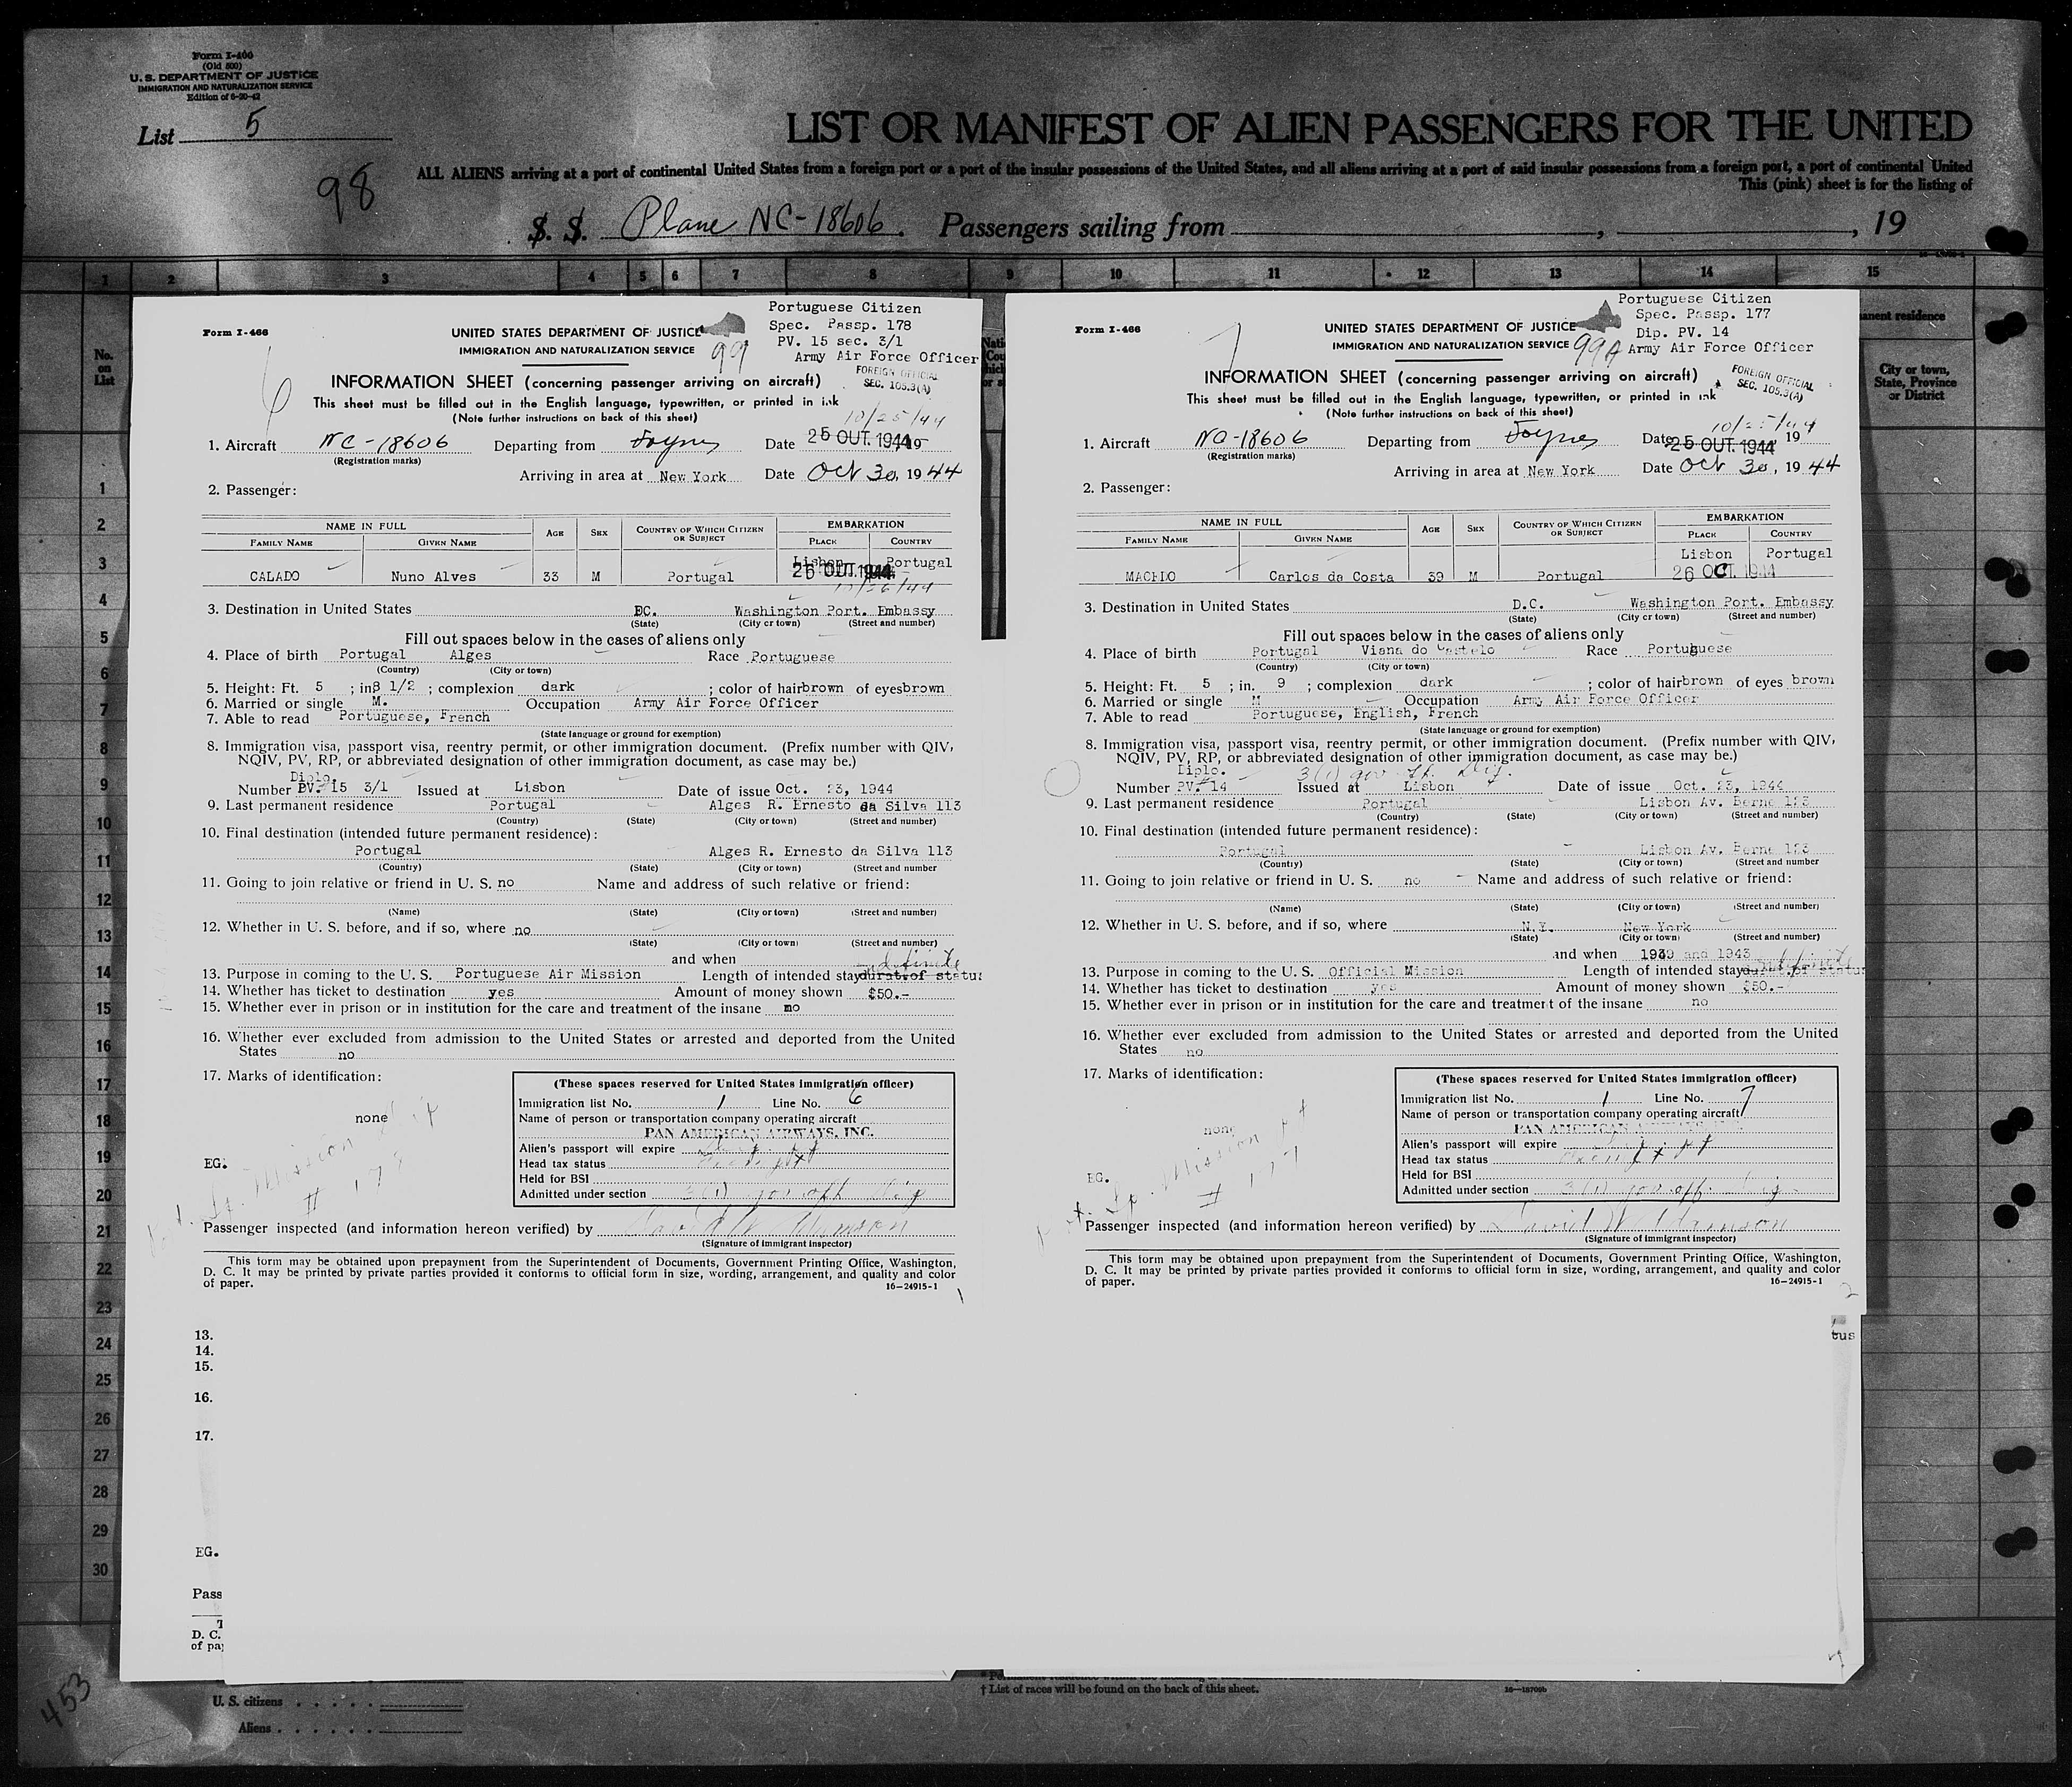 Form I-400
(Old 500)
U. S. DEPARTMENT OF JUSTICE
IMMIGRATION AND NATURALIZATION SERVICE
Edition of 6-20-42
List 5
98
LIST OR MANIFEST OF ALIEN PASSENGERS FOR THE UNITED
ALL ALIENS arriving at a port of continental United States from a foreign port or a port of the insular possessions of the United States, and all aliens arriving at a port of said insular possessions from a foreign port, a port of continental United
This (pink) sheet is for the listing of
S. S. Plane NC-18606. Passengers sailing from , , 19
1 2 3 4 5 6 7 8 9 10 11 12 13 14 15
No.
on
List
1
2
3
4
5
6
7
8
9
10
11
12
13
14
15
16
17
18
19
20
21
22
23
24
25
26
27
28
29
30
Form I-466
6
UNITED STATES DEPARTMENT OF JUSTICE
IMMIGRATION AND NATURALIZATION SERVICE
99
Portuguese Citizen
Spec. Passp. 178
PV. 15 sec. 3/1
Army Air Force Officer
FOREIGN OFFICIAL
SEC. 105.3(A)
INFORMATION SHEET (concerning passenger arriving on aircraft)
This sheet must be filled out in the English language, typewritten, or printed in ink
(Note further instructions on back of this sheet)
10/25/44
1. Aircraft NC-18606 Departing from Foynes Date 25 OUT. 1944 19
(Registration marks)
Arriving in area at New York Date Oct 30, 1944
2. Passenger:
NAME IN FULL AGE SEX COUNTRY OF WHICH CITIZEN OR SUBJECT EMBARKATION
FAMILY NAME GIVEN NAME PLACE COUNTRY
Lisbon Portugal
CALADO Nuno Alves 33 M Portugal 26 OUT. 1944
10/26/44
3. Destination in United States DC. Washington Port. Embassy
(State) (City or town) (Street and number)
Fill out spaces below in the cases of aliens only
4. Place of birth Portugal Alges Race Portuguese
(Country) (City or town)
5. Height: Ft. 5 ; in 8 1/2 ; complexion dark ; color of hair brown of eyes brown
6. Married or single M. Occupation Army Air Force Officer
7. Able to read Portuguese, French
(State language or ground for exemption)
8. Immigration visa, passport visa, reentry permit, or other immigration document. (Prefix number with QIV,
NQIV, PV, RP, or abbreviated designation of other immigration document, as case may be.)
Diplo.
Number PV. 15 3/1 Issued at Lisbon Date of issue Oct. 23, 1944
9. Last permanent residence Portugal Alges R. Ernesto da Silva 113
(Country) (State) (City or town) (Street and number)
10. Final destination (intended future permanent residence):
Portugal Alges R. Ernesto da Silva 113
(Country) (State) (City or town) (Street and number
11. Going to join relative or friend in U. S. no Name and address of such relative or friend:
(Name) (State) (City or town) (Street and number)
12. Whether in U. S. before, and if so, where no
(State) (City or town) (Street and number)
and when
13. Purpose in coming to the U. S. Portuguese Air Mission Length of intended stay durat. of status
14. Whether has ticket to destination yes Amount of money shown $50.-
15. Whether ever in prison or in institution for the care and treatment of the insane no
16. Whether ever excluded from admission to the United States or arrested and deported from the United
States no
17. Marks of identification:
none
EG.
# 178
(These spaces reserved for United States immigration officer)
Immigration list No. 1 Line No. 6
Name of person or transportation company operating aircraft
PAN AMERICAN AIRWAYS, INC.
Alien's passport will expire
Head tax status
Held for BSI
Admitted under section 3(1) gov off
Passenger inspected (and information hereon verified) by David W Adamson
(Signature of immigrant inspector)
This form may be obtained upon prepayment from the Superintendent of Documents, Government Printing Office, Washington,
D. C. It may be printed by private parties provided it conforms to official form in size, wording, arrangement, and quality and color
of paper.
16—24915-1
13.
14.
15.
16.
17.
EG.
Pass
D. C.
of pa
Form I-466
7
UNITED STATES DEPARTMENT OF JUSTICE
IMMIGRATION AND NATURALIZATION SERVICE
99A
Portuguese Citizen
Spec. Passp. 177
Dip. PV. 14
Army Air Force Officer
FOREIGN OFFICIAL
SEC. 105.3(A)
INFORMATION SHEET (concerning passenger arriving on aircraft)
This sheet must be filled out in the English language, typewritten, or printed in ink
(Note further instructions on back of this sheet)
10/25/44
1. Aircraft NC-18606 Departing from Foynes Date 25 OUT. 1944 19
(Registration marks)
Arriving in area at New York Date Oct 30, 1944
2. Passenger:
NAME IN FULL AGE SEX COUNTRY OF WHICH CITIZEN OR SUBJECT EMBARKATION
FAMILY NAME GIVEN NAME PLACE COUNTRY
Lisbon Portugal
Carlos da Costa 39 M Portugal 26 OCT. 1944
3. Destination in United States D.C. Washington Port. Embassy
(State) (City or town) (Street and number)
Fill out spaces below in the cases of aliens only
4. Place of birth Portugal Viana do Castelo Race Portuguese
(Country) (City or town)
5. Height: Ft. 5 ; in. 9 ; complexion dark ; color of hair brown of eyes brown
6. Married or single M Occupation Army Air Force Officer
7. Able to read Portuguese, English, French
(State language or ground for exemption)
8. Immigration visa, passport visa, reentry permit, or other immigration document. (Prefix number with QIV,
NQIV, PV, RP, or abbreviated designation of other immigration document, as case may be.)
Diplo. 3(1) gov
Number PV. 14 Issued at Lisbon Date of issue Oct. 23, 1944
9. Last permanent residence Portugal Lisbon Av. Berne 123
(Country) (State) (City or town) (Street and number)
10. Final destination (intended future permanent residence):
Portugal Lisbon Av. Berne 123
(Country) (State) (City or town) (Street and number
11. Going to join relative or friend in U. S. no Name and address of such relative or friend:
(Name) (State) (City or town) (Street and number)
12. Whether in U. S. before, and if so, where N.Y. New York
(State) (City or town) (Street and number)
and when 1939 and 1943
13. Purpose in coming to the U. S. Official Mission Length of intended stay durat. of status
14. Whether has ticket to destination yes Amount of money shown $50.-
15. Whether ever in prison or in institution for the care and treatment of the insane no
16. Whether ever excluded from admission to the United States or arrested and deported from the United
States no
17. Marks of identification:
none
EG.
# 177
(These spaces reserved for United States immigration officer)
Immigration list No. 1 Line No. 7
Name of person or transportation company operating aircraft
PAN AMERICAN AIRWAYS, INC.
Alien's passport will expire
Head tax status
Held for BSI
Admitted under section 3(1) gov off.
Passenger inspected (and information hereon verified) by David W Adamson
(Signature of immigrant inspector)
This form may be obtained upon prepayment from the Superintendent of Documents, Government Printing Office, Washington,
D. C. It may be printed by private parties provided it conforms to official form in size, wording, arrangement, and quality and color
of paper.
16—24915-1
2
tus
anent residence
City or town,
State, Province
or District
453
U. S. citizens
Aliens
† List of races will be found on the back of this sheet.